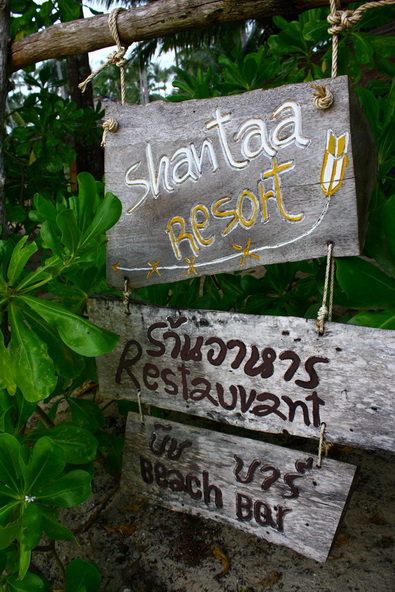 shantaa
Resort
ร้านอาหาร
Restauvant
บีช บาร์
Beach Bar